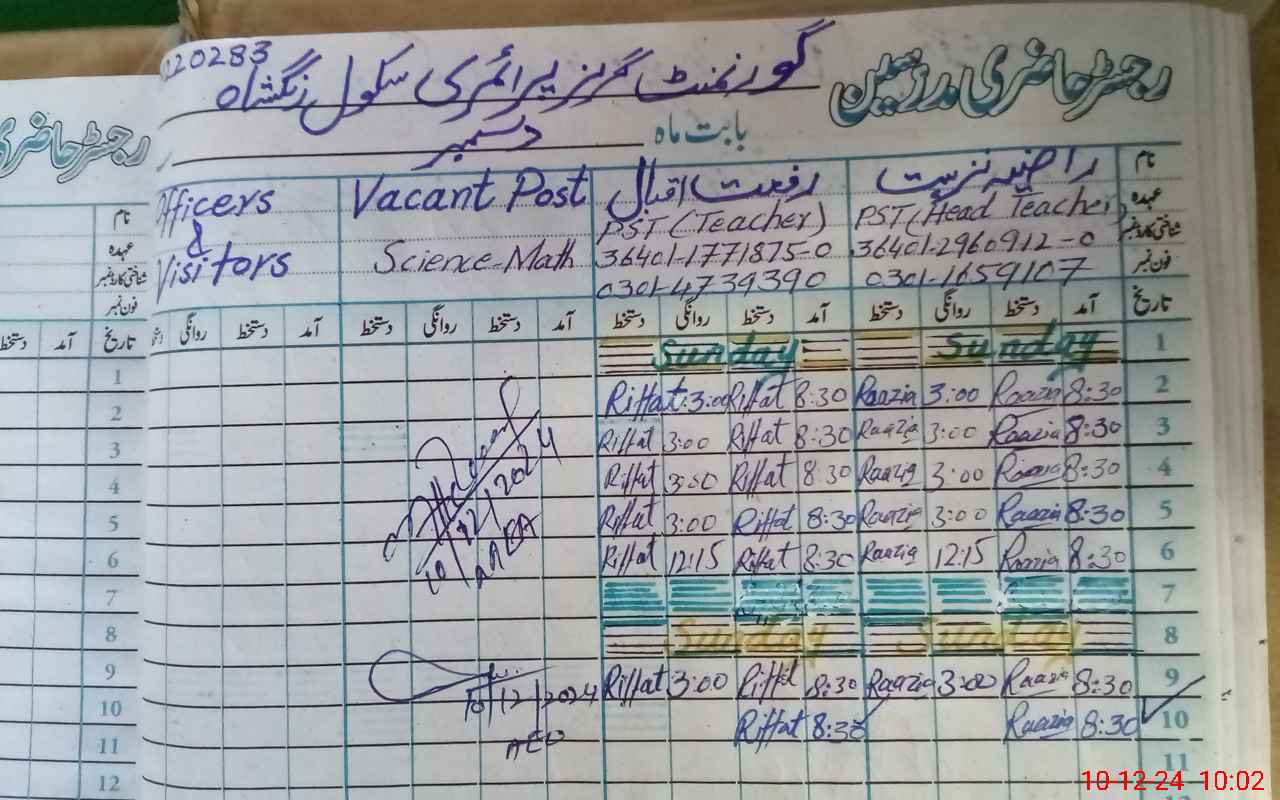 رجسٹر حاضری مدرسین
گورنمنٹ گرلز پرائمری سکول رنگشاہ
220283
بابت ماہ دسمبر
رجسٹر حاضری
نام راضیہ نزہت رفعت اقبال Vacant Post Officers
عہدہ PST (Head Teacher) PST (Teacher) &
شناختی کارڈ نمبر 36401-2960912-0 36401-1771875-0 Science-Math Visitors
فون نمبر 0301-1659107 0301-4739390
تاریخ آمد دستخط روانگی دستخط آمد دستخط روانگی دستخط آمد دستخط روانگی دستخط روانگی
1 Sunday Sunday
2 8:30 Raazia 3:00 Raazia 8:30 Riffat 3:00 Riffat
3 8:30 Raazia 3:00 Raazia 8:30 Riffat 3:00 Riffat
4 8:30 Raazia 3:00 Raazia 8:30 Riffat 3:00 Riffat
5 8:30 Raazia 3:00 Raazia 8:30 Riffat 3:00 Riffat
6 8:30 Raazia 12:15 Raazia 8:30 Riffat 12:15 Riffat
7
8 Sunday Sunday
9 8:30 Raazia 3:00 Raazia 8:30 Riffat 3:00 Riffat
10 8:30 Raazia 8:30 Riffat
11
10/12/2024
AEO
10/12/2024
AEO
نام
عہدہ
شناختی کارڈ نمبر
فون نمبر
تاریخ آمد دستخط
1
2
3
4
5
6
7
8
9
10
11
12
10-12-24 10:02